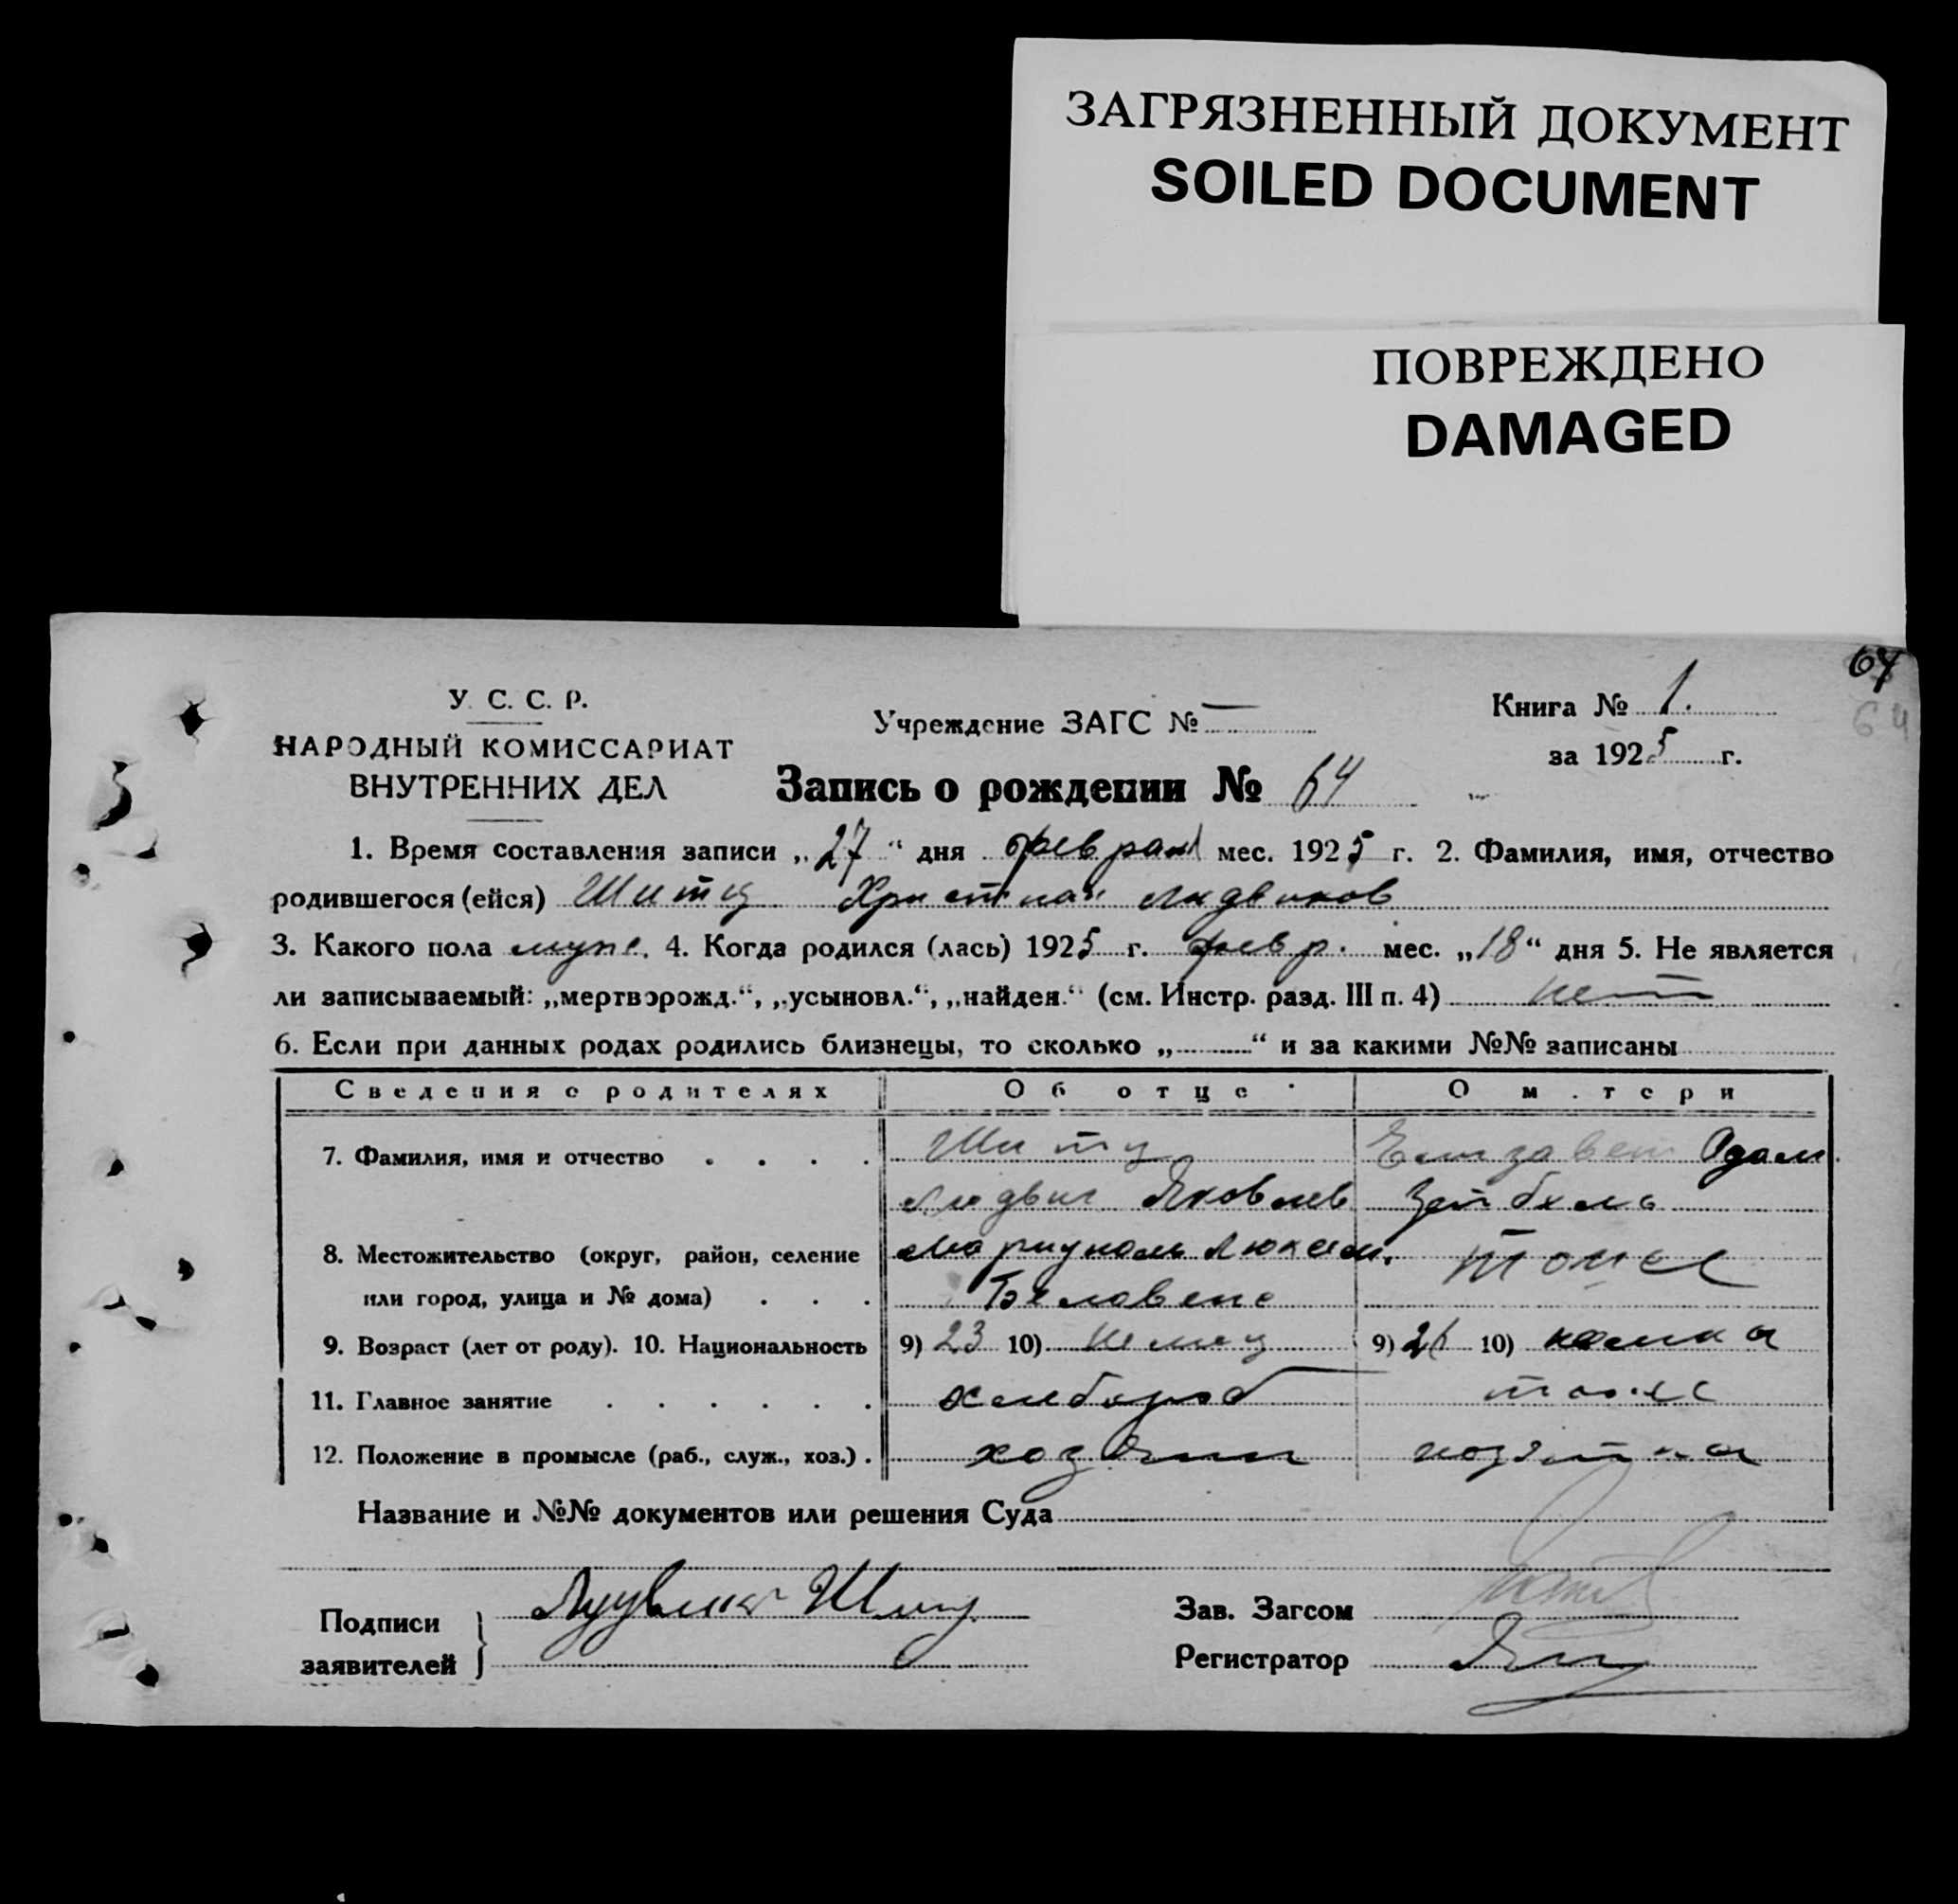 ЗАГРЯЗНЕННЫЙ ДОКУМЕНТ
SOILED DOCUMENT
ПОВРЕЖДЕНО
DAMAGED
64
64
У. С. С. Р.
НАРОДНЫЙ КОМИССАРИАТ
ВНУТРЕННИХ ДЕЛ
Учреждение ЗАГС № —
Книга № 1.
за 1925 г.
Запись о рождении № 64
1. Время составления записи „27“ дня феврал мес. 1925 г. 2. Фамилия, имя, отчество
родившегося (ейся) Шитц Христиан Людвигов
3. Какого пола муж. 4. Когда родился (лась) 1925 г. февр. мес. „18“ дня 5. Не является
ли записываемый: „мертворожд.“, „усыновл.“, „найден.“ (см. Инстр. разд. III п. 4) нет
6. Если при данных родах родились близнецы, то сколько „ “ и за какими №№ записаны
Сведения о родителях Об отце О м.тери
7. Фамилия, имя и отчество Шитц Елизавет Адам.
Людвиг Яковлев
8. Местожительство (округ, район, селение Мариуполь Люксем. тоже
или город, улица и № дома)
9. Возраст (лет от роду). 10. Национальность 9) 23 10) немец 9) 10) немка
11. Главное занятие хлебороб тоже
12. Положение в промысле (раб., служ., хоз.) хозяин хозяйка
Название и №№ документов или решения Суда
Подписи
заявителей
Людвиг Шитц
Зав. Загсом
Регистратор